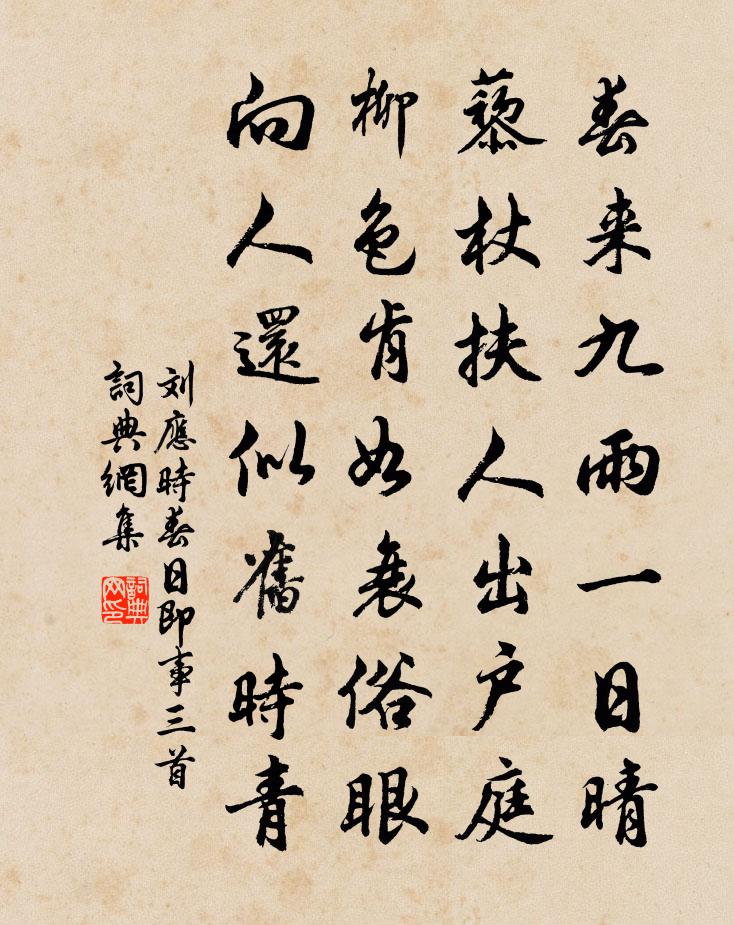 春来九雨一日晴
藜杖扶人出戶庭
柳色肯如衰俗眼
向人還似舊時青
刘應時春日即事三首
詞典網集
詞典
网印